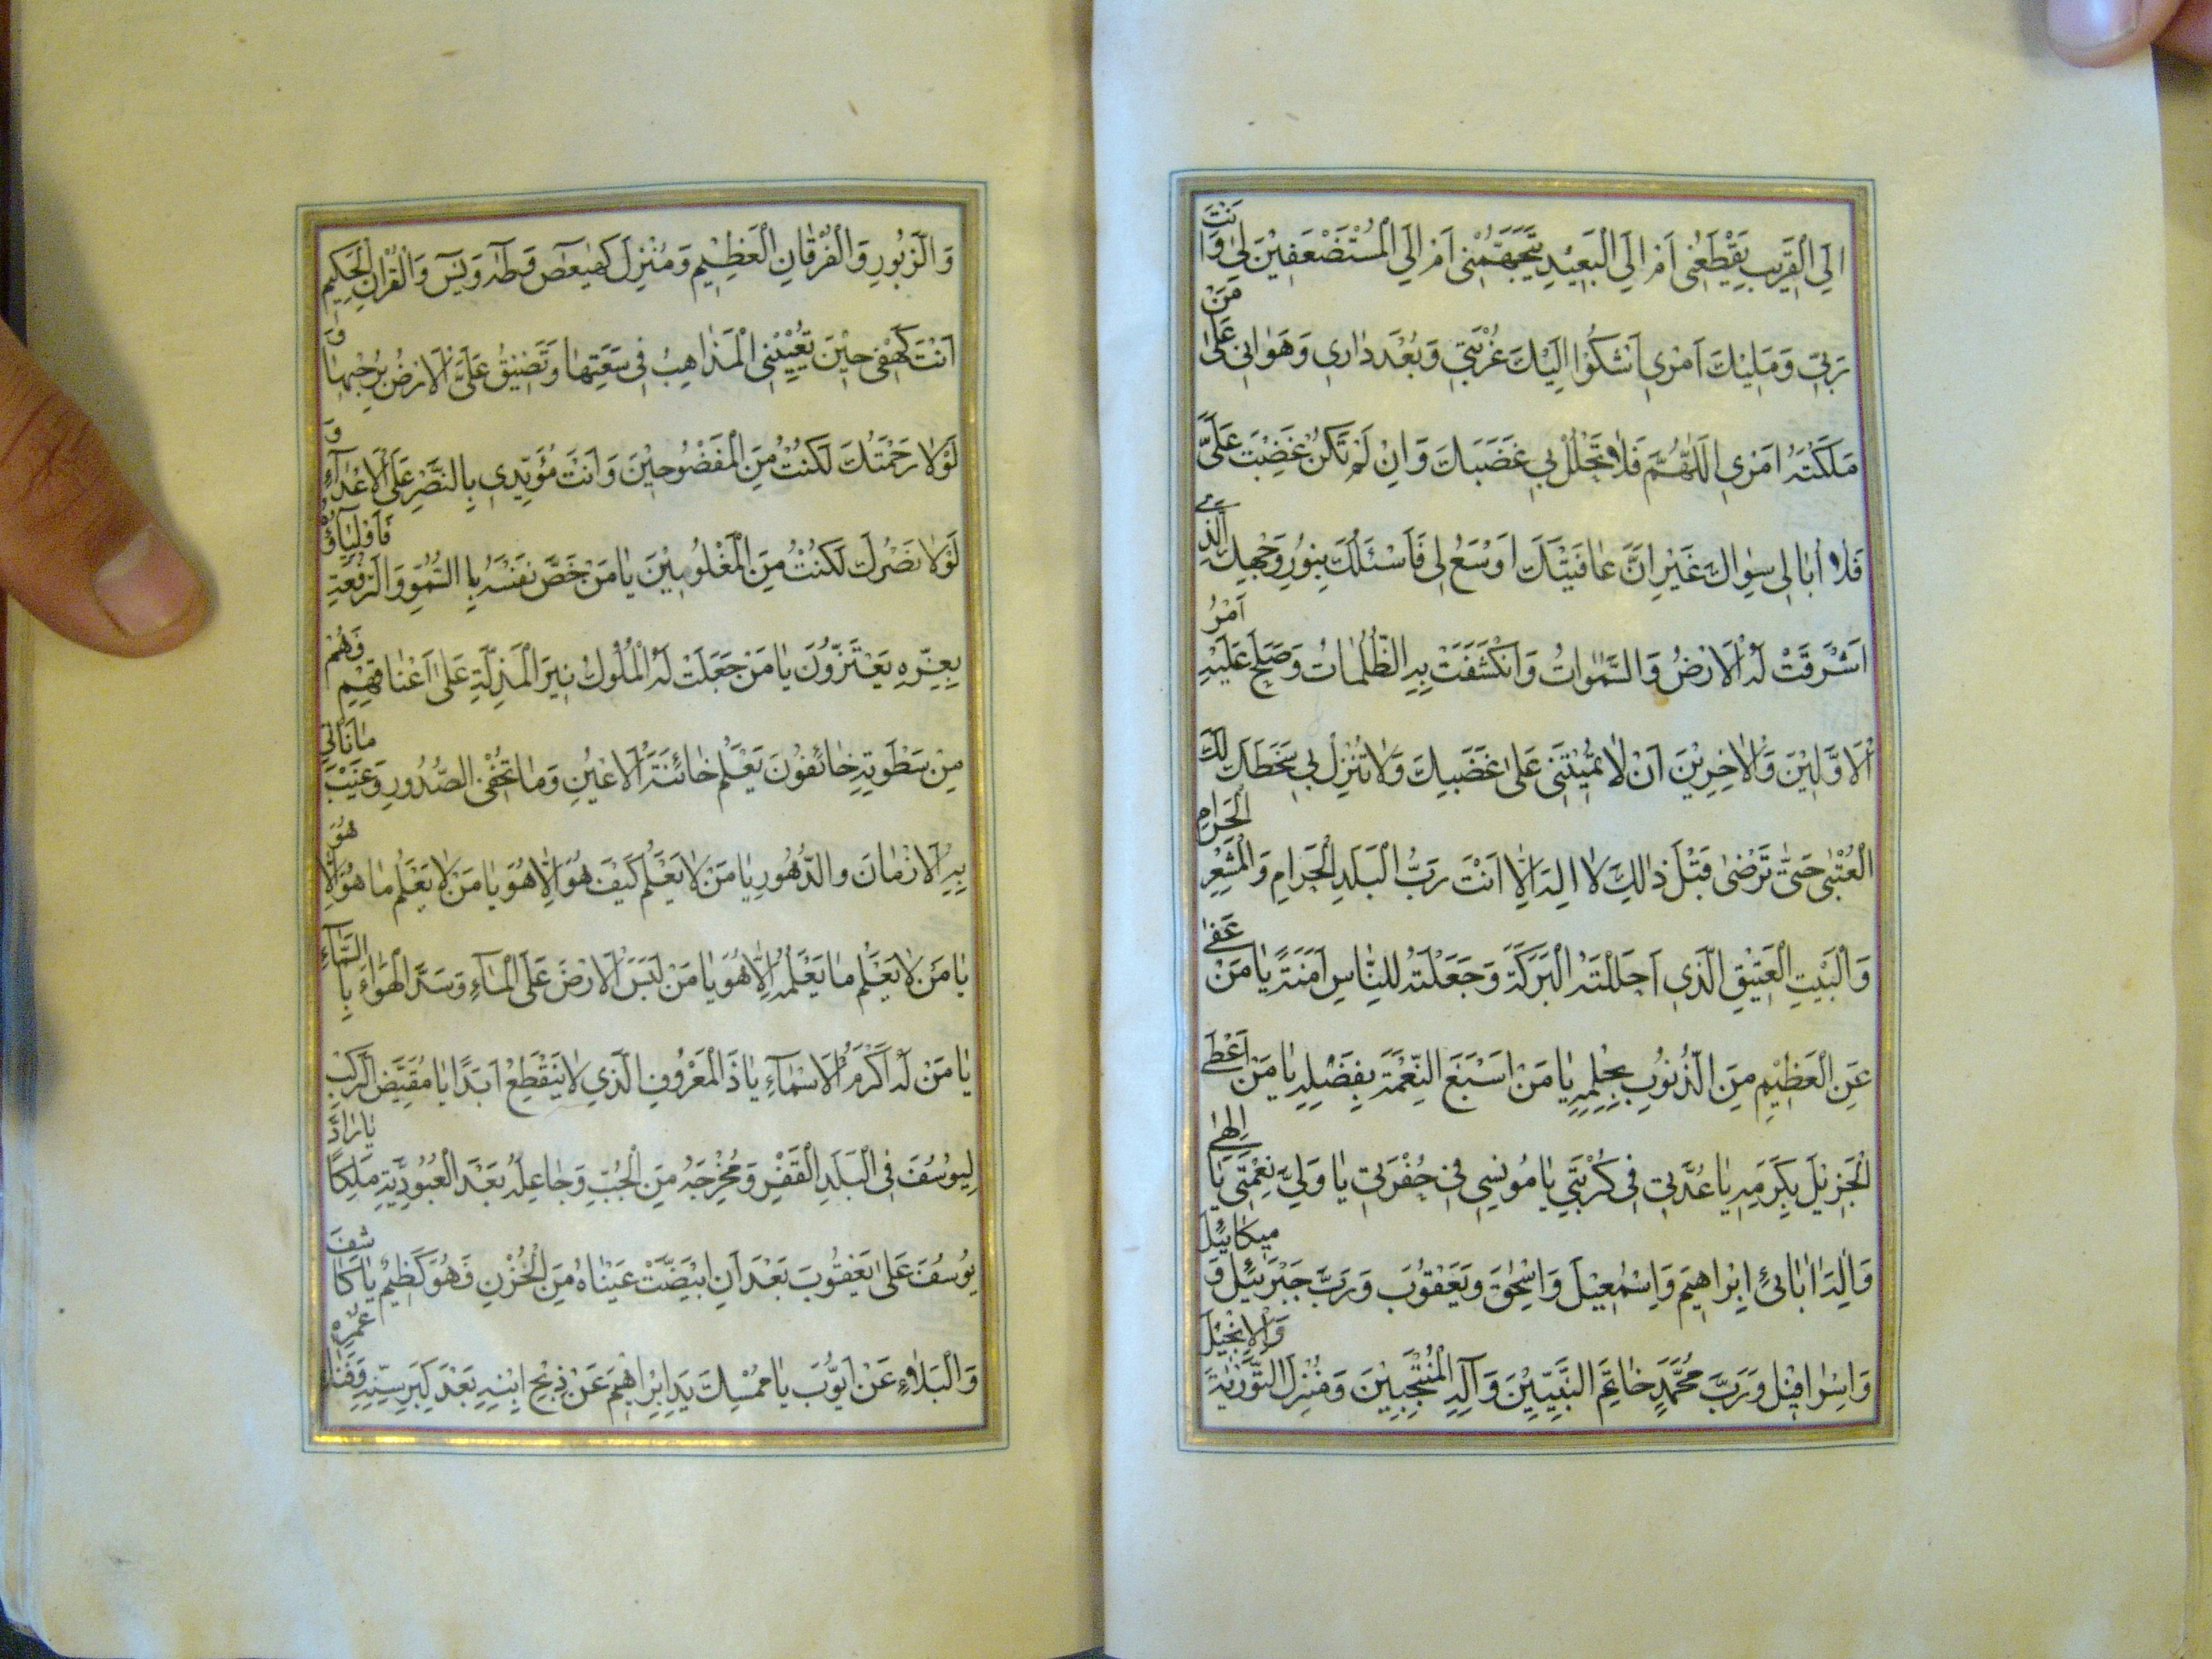 اِلَى الْقَرِيبِ يَقْطَعُنِي اَمْ اِلَى الْبَعِيدِ يَتَجَهَّمُنِي اَمْ اِلَى الْمُسْتَضْعَفِينَ لِي وَاَنْتَ
رَبِّي وَمَلِيكُ اَمْرِي اَشْكُوا اِلَيْكَ غُرْبَتِي وَبُعْدَ دَارِي وَهَوَانِي عَلَى مَنْ
مَلَّكْتَهُ اَمْرِي اللّهُمَّ فَلَا تُحْلِلْ بِي غَضَبَكَ وَاِنْ لَمْ تَكُنْ غَضِبْتَ عَلَيَّ
فَلَا اُبَالِي سِوَاكَ غَيْرَ اَنَّ عَافِيَتَكَ اَوْسَعُ لِي فَاَسْئَلُكَ بِنُورِ وَجْهِكَ الَّذِي
اَشْرَقَتْ لَهُ الْاَرْضُ وَالسَّمٰوَاتُ وَانْكَشَفَتْ بِهِ الظُّلُمَاتُ وَصَلَحَ عَلَيْهِ اَمْرُ
الْاَوَّلِينَ وَالْاخِرِينَ اَنْ لَا تُمِيتَنِي عَلَى غَضَبِكَ وَلَا تُنْزِلْ بِي سَخَطَكَ لَكَ
الْعُتْبَى حَتَّى تَرْضَى قَبْلَ ذٰلِكَ لَا اِلهَ اِلَّا اَنْتَ رَبُّ الْبَلَدِ الْحَرَامِ وَالْمَشْعَرِ الْحَرَامِ
وَالْبَيْتِ الْعَتِيقِ الَّذِي اَحْلَلْتَهُ الْبَرَكَةَ وَجَعَلْتَهُ لِلنَّاسِ اَمَنَةً يَا مَنْ عَفَى
عَنِ الْعَظِيمِ مِنَ الذُّنُوبِ بِحِلْمِهِ يَا مَنْ اَسْبَغَ النِّعْمَةَ بِفَضْلِهِ يَا مَنْ اَعْطَى
الْجَزِيلَ بِكَرَمِهِ يَا عُدَّتِي فِي كُرْبَتِي يَا مُونِسِي فِي حُفْرَتِي يَا وَلِيَّ نِعْمَتِي يَا اِلٰهِي
وَاِلهَ ابَائِي اِبْرَاهِيمَ وَاِسْمٰعِيلَ وَاِسْحٰقَ وَيَعْقُوبَ وَرَبَّ جَبْرَئِيلَ وَ مِيكَائِيلَ
وَاِسْرَافِيلَ وَرَبَّ مُحَمَّدٍ خَاتَمِ النَّبِيِّينَ وَآلِهِ الْمُنْتَجَبِينَ وَمُنْزِلَ التَّوْرٰيةِ وَالْاِنْجِيلَ
وَالزَّبُورِ وَالْفُرْقَانِ الْعَظِيمِ وَمُنْزِلَ كهيعص وَطه وَيس وَالْقُرْآنِ الْحَكِيمِ
اَنْتَ كَهْفِي حِينَ تُعْيِينِي الْمَذَاهِبُ فِي سَعَتِهَا وَتَضِيقُ عَلَيَّ الْاَرْضُ بِرُحْبِهَا وَ
لَوْلَا رَحْمَتُكَ لَكُنْتُ مِنَ الْمَفْضُوحِينَ وَاَنْتَ مُؤَيِّدِي بِالنَّصْرِ عَلَى الْاَعْدَاءِ وَ
لَوْلَا نَصْرُكَ لَكُنْتُ مِنَ الْمَغْلُوبِينَ يَا مَنْ خَصَّ نَفْسَهُ بِالسُّمُوِّ وَالرِّفْعَةِ فَاَوْلِيَاؤُهُ
بِعِزِّهِ يَعْتَزُّونَ يَا مَنْ جَعَلَتْ لَهُ الْمُلُوكُ نِيرَ الْمَذَلَّةِ عَلَى اَعْنَاقِهِمْ فَهُمْ
مِنْ سَطْوَتِهِ خَائِفُونَ يَعْلَمُ خَائِنَةَ الْاَعْيُنِ وَمَا تُخْفِي الصُّدُورِ وَغَيْبَ مَا تَاْتِي
بِهِ الْاَزْمَانَ والدُّهُورِ يَا مَنْ لَا يَعْلَمُ كَيْفَ هُوَ اِلَّا هُوَ يَا مَنْ لَا يَعْلَمُ مَا هُوَ اِلَّا هُوَ
يَا مَنْ لَا يَعْلَمُ مَا يَعْلَمُهُ اِلَّا هُوَ يَا مَنْ كَبَسَ الْاَرْضَ عَلَى الْمَاءِ وَسَدَّ الْهَوَاءَ بِالسَّمَاءِ
يَا مَنْ لَهُ اَكْرَمُ الْاَسْمَاءِ يَا ذَا الْمَعْرُوفِ الَّذِي لَا يَنْقَطِعُ اَبَدًا يَا مُقَيِّضَ الرَّكْبِ
لِيُوسُفَ فِي الْبَلَدِ الْقَفْرِ وَمُخْرِجَهُ مِنَ الْجُبِّ وَجَاعِلَهُ بَعْدَ الْعُبُودِيَّةِ مَلِكًا يَا رَادَّ
يُوسُفَ عَلَى يَعْقُوبَ بَعْدَ اَنِ ابْيَضَّتْ عَيْنَاهُ مِنَ الْحُزْنِ فَهُوَ كَظِيمٌ يَا كَاشِفَ
وَالْبَلَاءِ عَنْ اَيُّوبَ يَا مُمْسِكَ يَدِ اِبْرَاهِيمَ عَنْ ذِبْحِ ابْنِهِ بَعْدَ كِبَرِ سِنِّهِ وَفَنَاءِ عُمُرِهِ